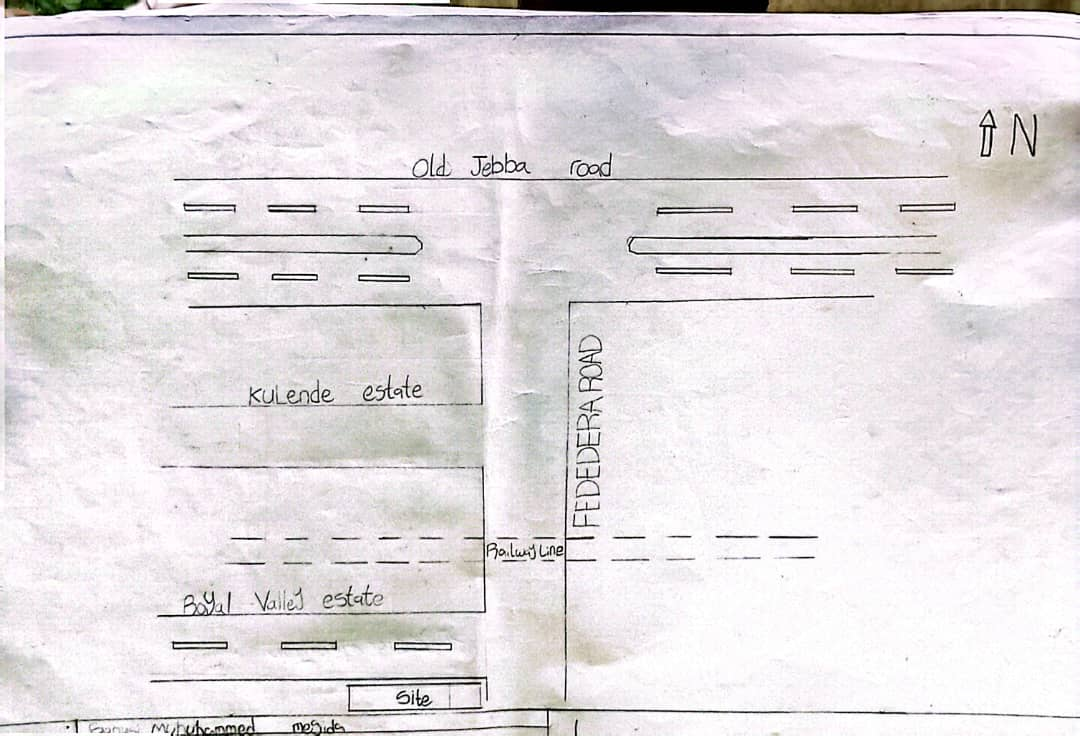 N
Old Jebba road
KULende estate
FEDEDERA ROAD
Railway Line
Royal Valley estate
Site
mesida